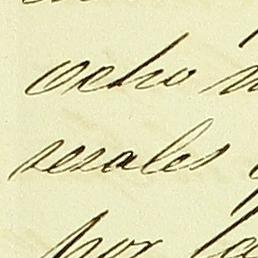 ocho
reales
por la